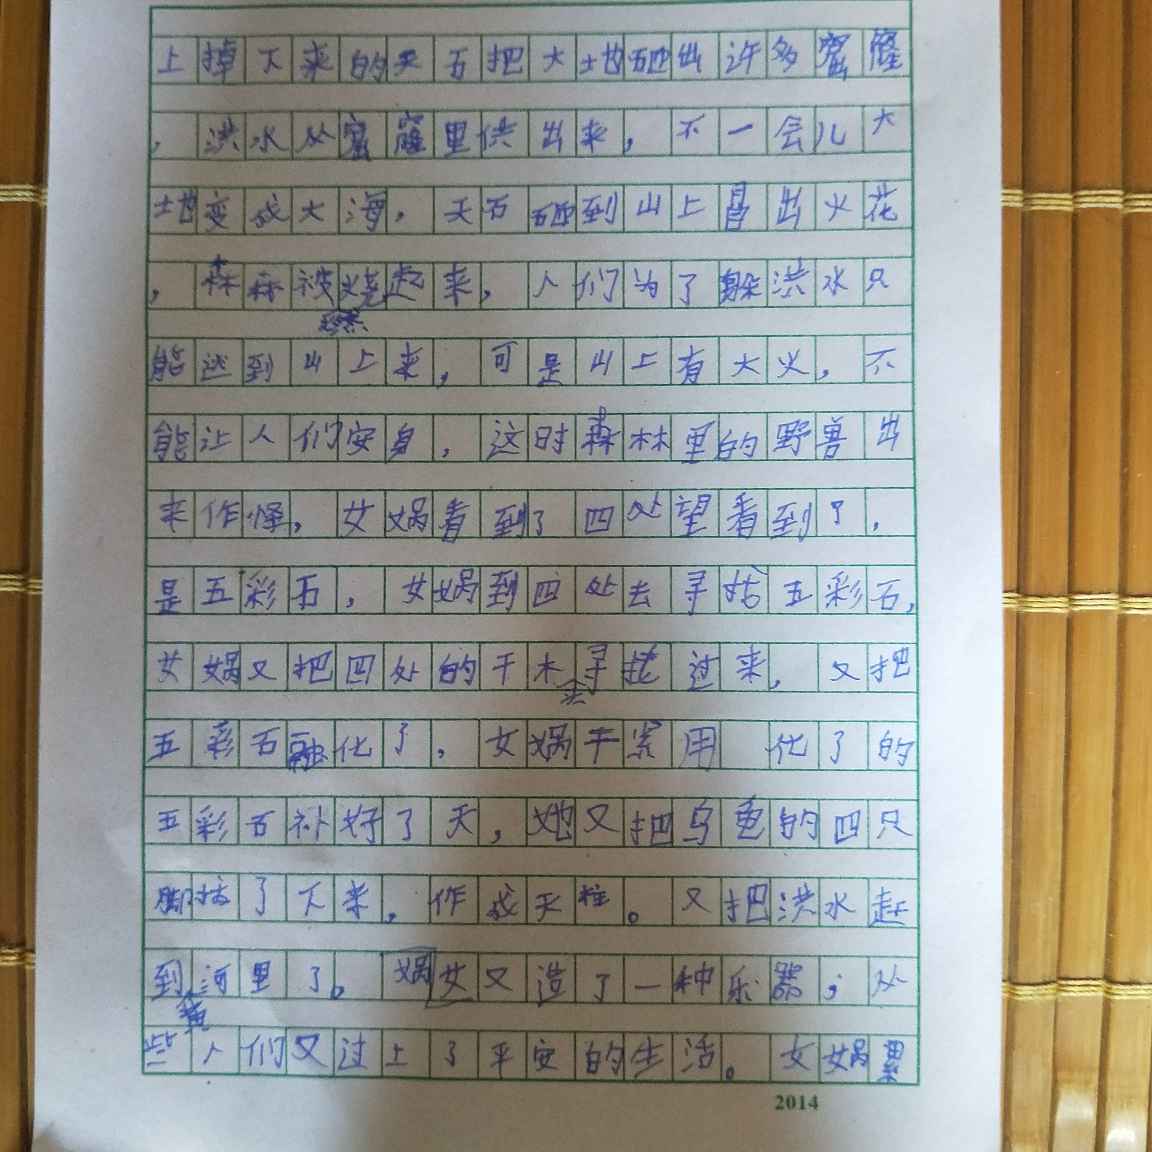 上掉下来的天石把大地砸出许多窟窿
，洪水从窟窿里供出来，不一会儿大
地变成大海，天石砸到山上冒出火花
，森林被燃烧起来，人们为了躲洪水只
能逃到山上来，可是山上有大火，不
能让人们安身，这时森林里的野兽出
来作怪，女娲看到了四处望看到了，
是五彩石，女娲到四处去寻找五彩石，
女娲又把四处的干木寻找过来，又把
五彩石融化了，女娲干累用化了的
五彩石补好了天，她又把乌龟的四只
脚拔了下来，作成天柱。又把洪水赶
到黄河里了。娲女又造了一种乐器，从
些人们又过上了平安的生活。女娲累
2014